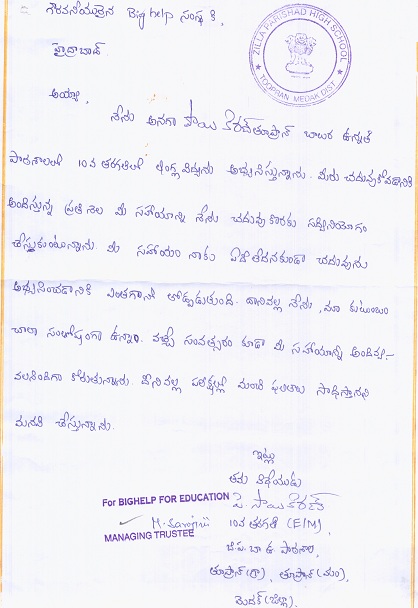 గౌరవనీయులైన Big help సంస్థ కి,
హైద్రాబాద్.
ZILLA PARISHAD HIGH SCHOOL
TOOPRAN MEDAK DIST.
అయ్యా,
నేను అనగా సాయి కిరణ్ తూప్రాన్ బాలుర ఉన్నత
పాఠశాలలో 10వ తరగతిలో ఇంగ్ల విద్యను అభ్యసిస్తున్నాను. మీరు చదువుకోవడానికి
అందిస్తున్న ప్రతి నెల మీ సహాయాన్ని నేను చదువు కొరకు సద్వినియోగం
చేస్తుకుంటున్నాను. మీ సహాయం నాకు ఏ చదువును
అభ్యసించడానికి ఎంతగానో తోడ్పడుతుంది. దానివల్ల నేను, మా కుటుంబం
చాలా సంతోషంగా ఉన్నాం. వచ్చే సంవత్సరం కూడా మీ సహాయాన్ని అందివ్వ-
వలసిందిగా కోరుతున్నాను. దీనివల్ల పరీక్షల్లో మంచి ఫలితాలు సాధిస్తానని
మనవి చేస్తున్నాను.
ఇట్లు
తమ విధేయుడు
పి. సాయి కిరణ్
For BIGHELP FOR EDUCATION
10వ తరగతి (E/M),
M. Sarojini
MANAGING TRUSTEE
జి.ప. బా ఉ పాఠశాల,
తూప్రాన్ (గ్రా), తూప్రాన్ (మం),
మెదక్ (జిల్లా).